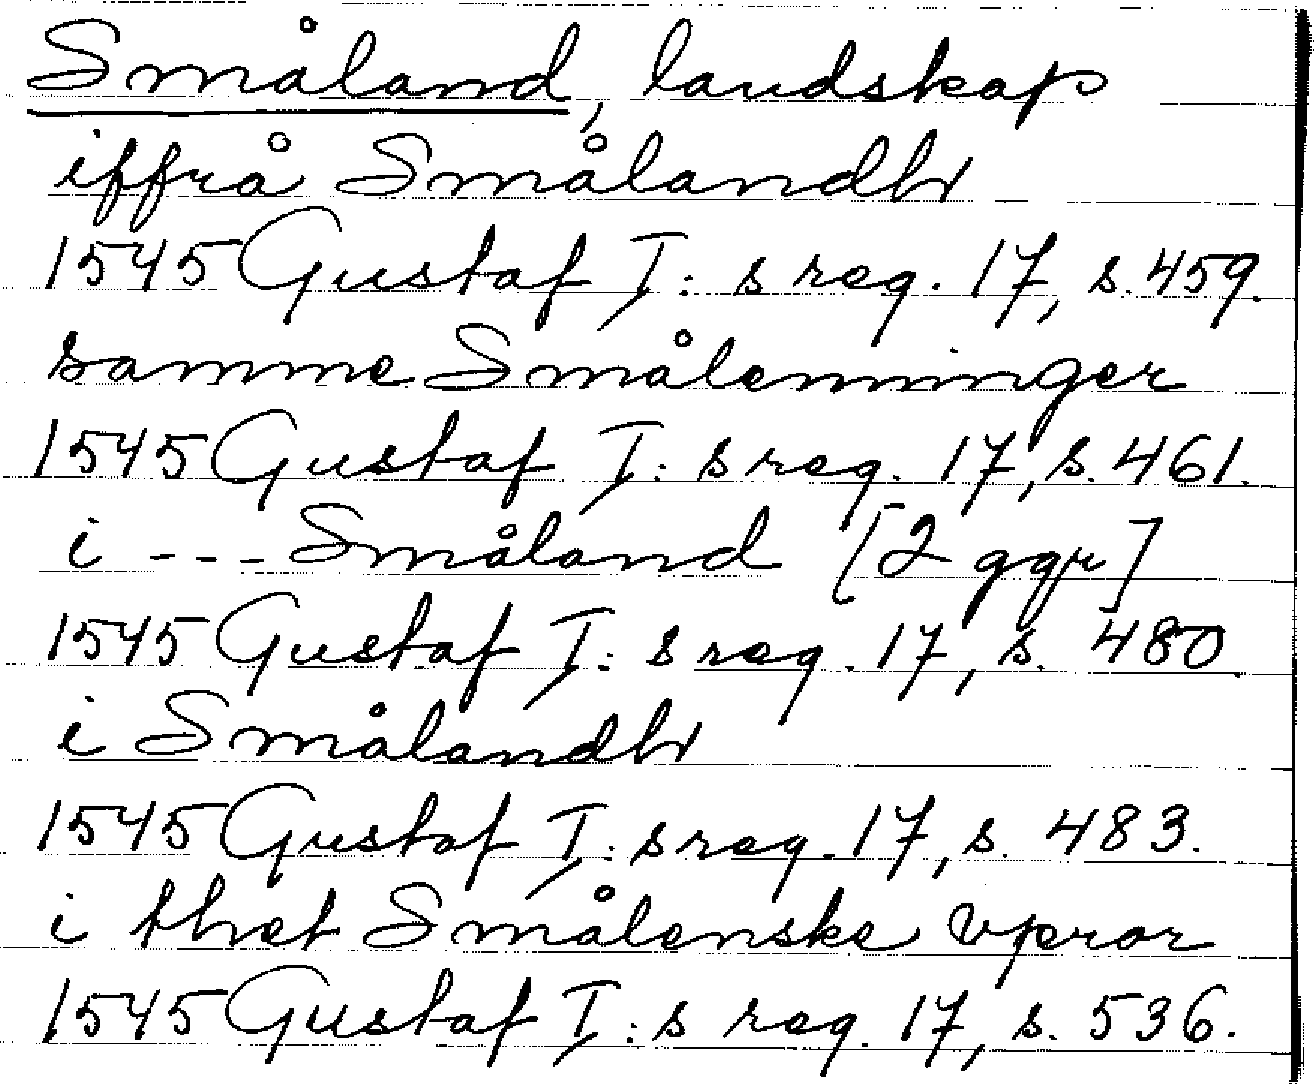 Småland, landskap
iffrå Smålandh
1545 Gustaf I:s reg. 17, s. 459.
samme Smålenninger
1545 Gustaf I:s reg. 17, s. 461.
i --- Småland [2 ggr]
1545 Gustaf I:s reg. 17, s. 480
i Smålandh
1545 Gustaf I:s reg. 17, s. 483.
i thet Smålenske vpror
1545 Gustaf I:s reg. 17, s. 536.